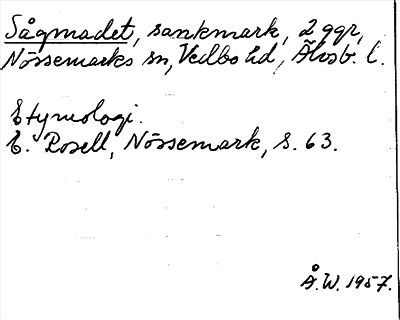 Sågmadet, sankmark, 2 ggr,
Nössemarks sn, Vedbo hd, Älvsb. l.
Etymologi.
E. Rosell, Nössemark, s. 63.
Å.W. 1957.